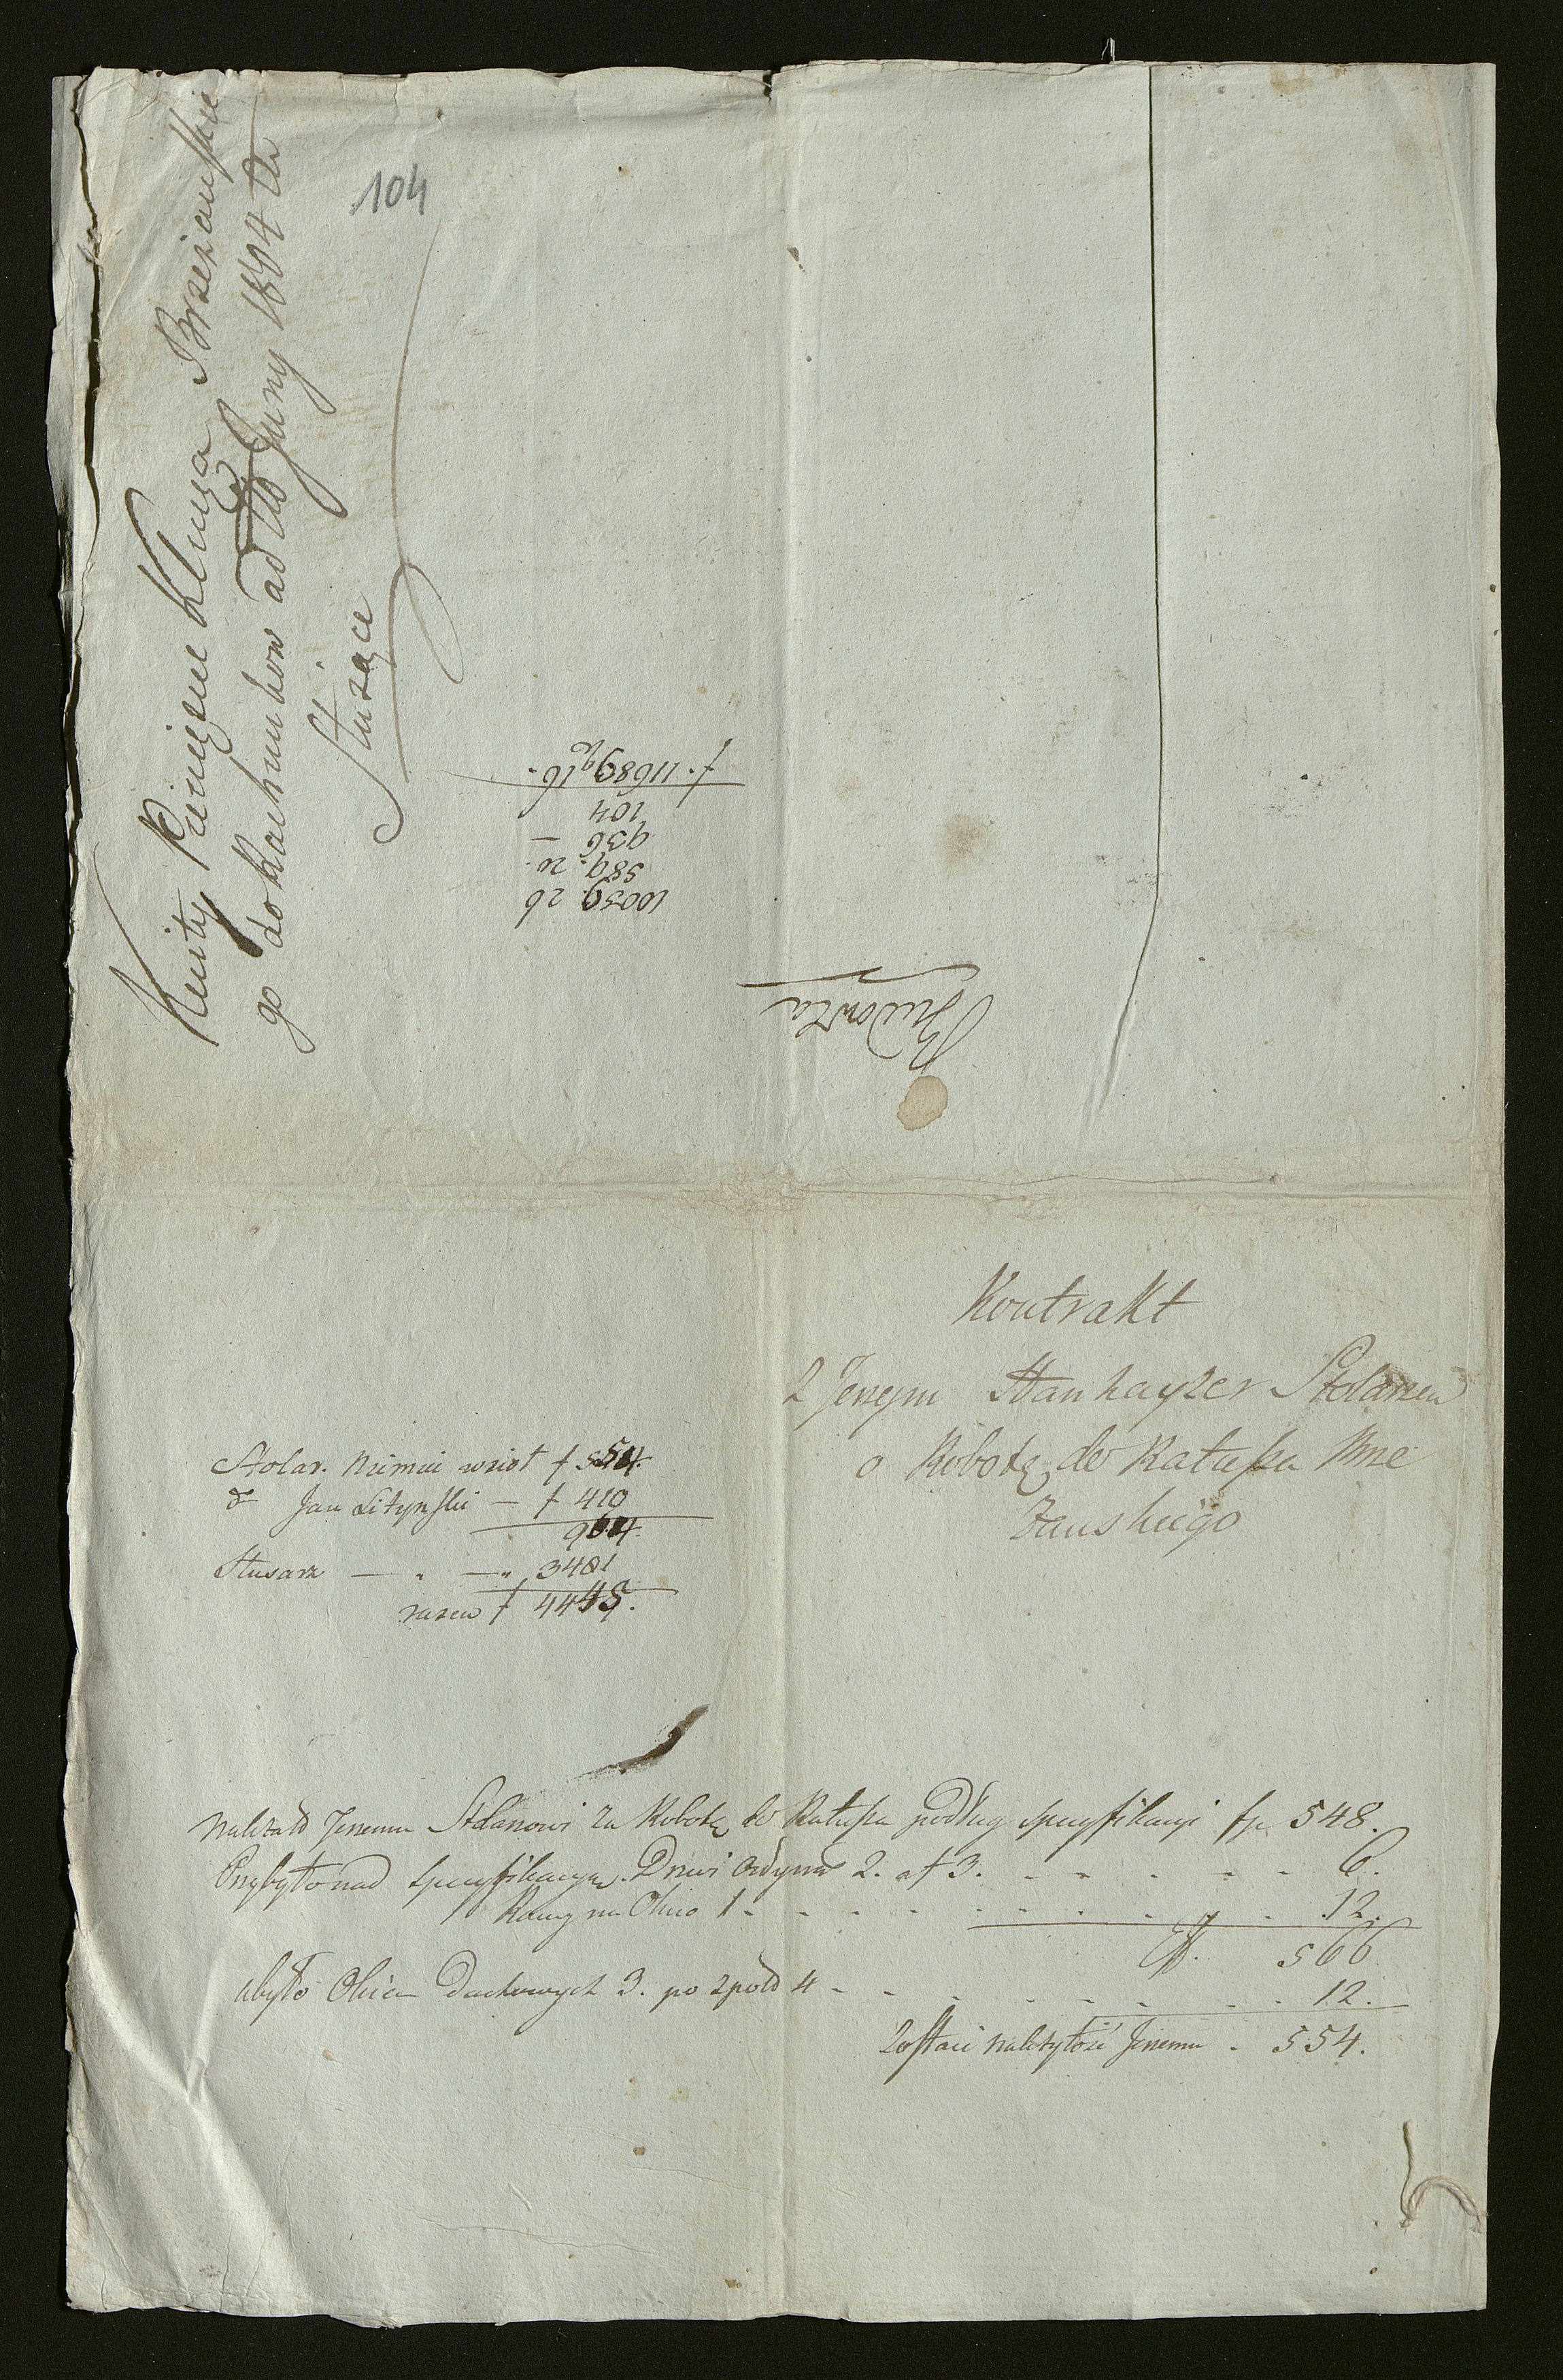 104
Kwity Pieniężne Klucza Brzezanskie
go do Rachunkow ad ttū Juny 1804
Służące
10059. 26
589. 20.
936 —
104
f. 11689 16.
Budowla
Kontrakt
z Jerzym Stanhayzer Stolarzem
o Robotę do Ratusza Brze
żanskiego
Stolar. Niemiec wzioł f 554.
Jan Litynski — f 410
964.
Slusarz — . — " 3481
razem f 4445.
Należało Jerzemu Stolarzowi za Robotę do Ratusza podług specyfikacyi fp. 548.
Przybyło nad specyfikacyą. Drzwi Ordynar 2. af 3. - - - - - 6.
Ramy na Okno 1 - - - - - - - - 12.
566
ubyło Okien Dachowych 3. po zpold 4 - - - - - - - 12.
Zostaie należytość Jerzemu - 554.